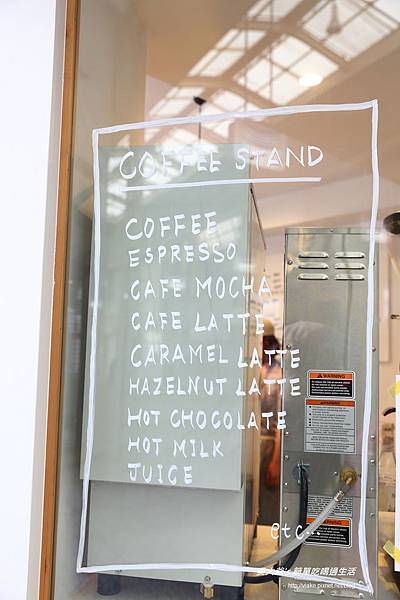 COFFEE STAND
COFFEE
ESPRESSO
CAFE MOCHA
CAFE LATTE
CARAMEL LATTE
HAZELNUT LATTE
HOT CHOCOLATE
HOT MILK
JUICE
etc.
WARNING
WARNING
簡單吃喝過生活
簡單吃喝過生活